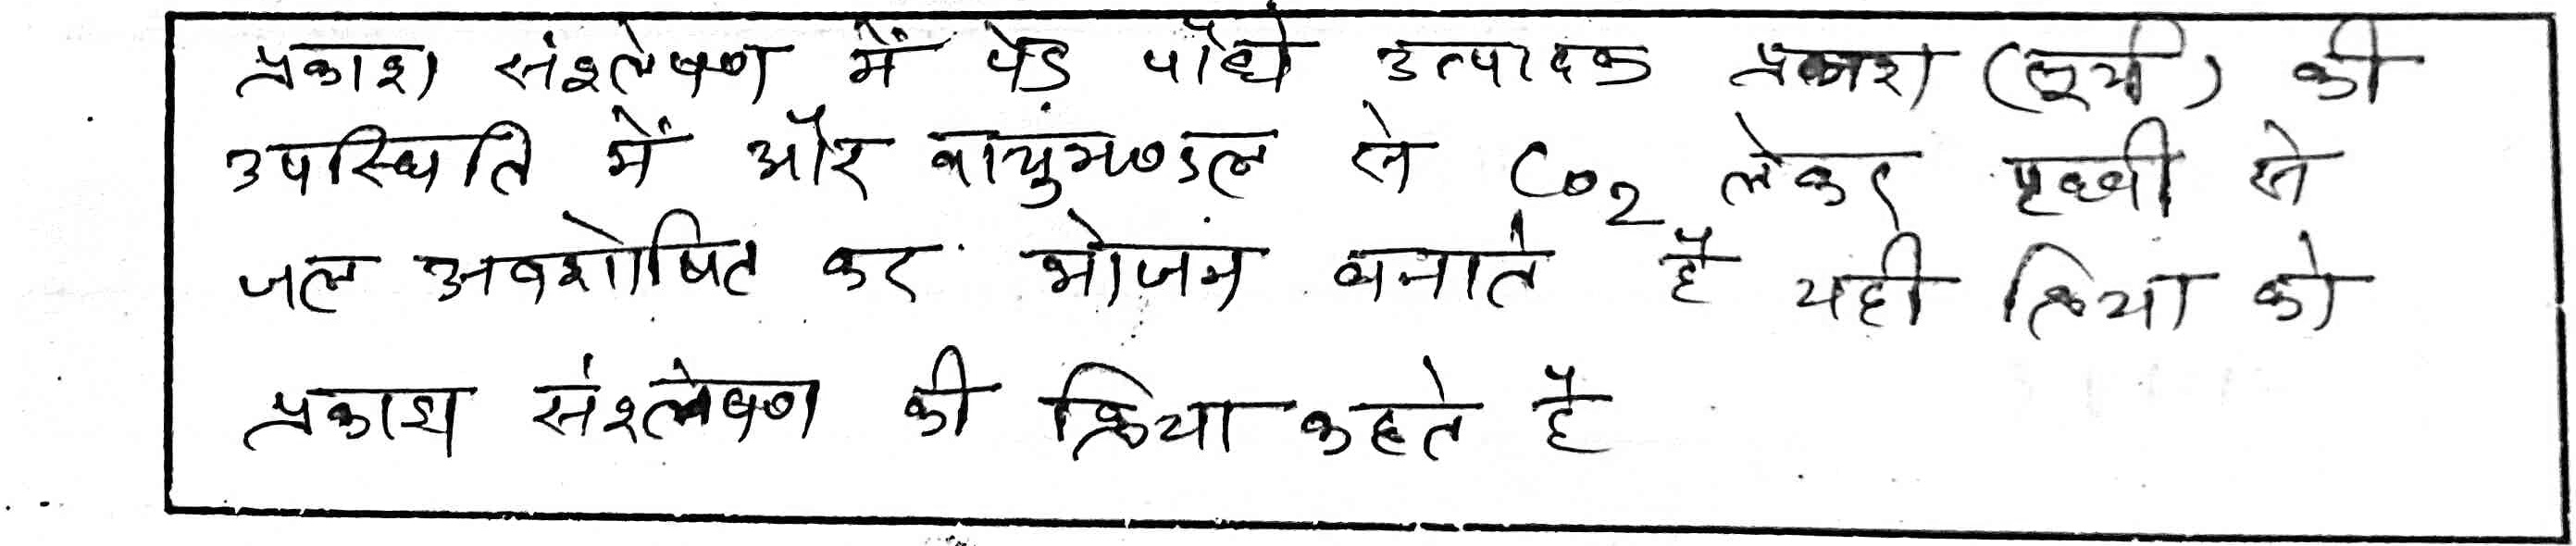 प्रकाश संश्लेषण में पेड पौधे उत्पादक प्रकाश (सूर्य) की
उपस्थिति में और वायुमण्डल से CO₂ लेकर पृथ्वी से
जल अवशोषित कर भोजन बनाते है यही क्रिया को
प्रकाश संश्लेषण की क्रिया कहते है